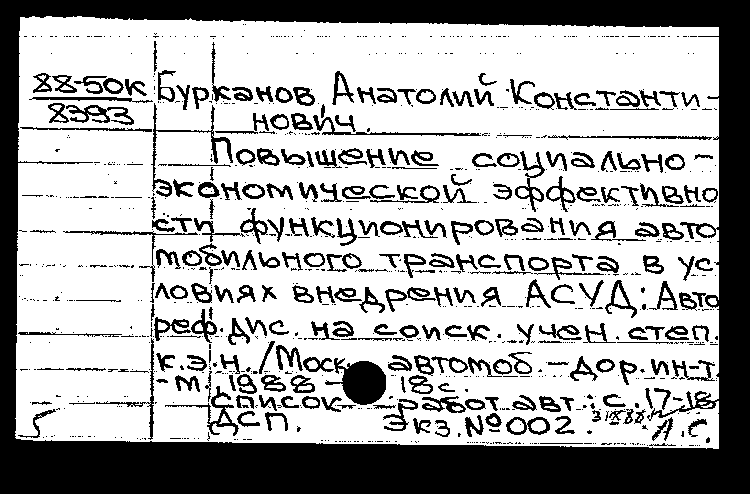 88-50к
8393
Бурканов, Анатолий Константи-
нович.
Повышение социально-
экономической эффективно
сти функционирования авто
мобильного транспорта в ус-
ловиях внедрения АСУД: Авто
реф. дис. на соиск. учен. степ.
к.э.н. /Моск. автомоб.-дор. ин-т.
-М., 1988 - 18 с.
Список работ авт.: с. 17-18
ДСП. Экз. №002.
А.С.